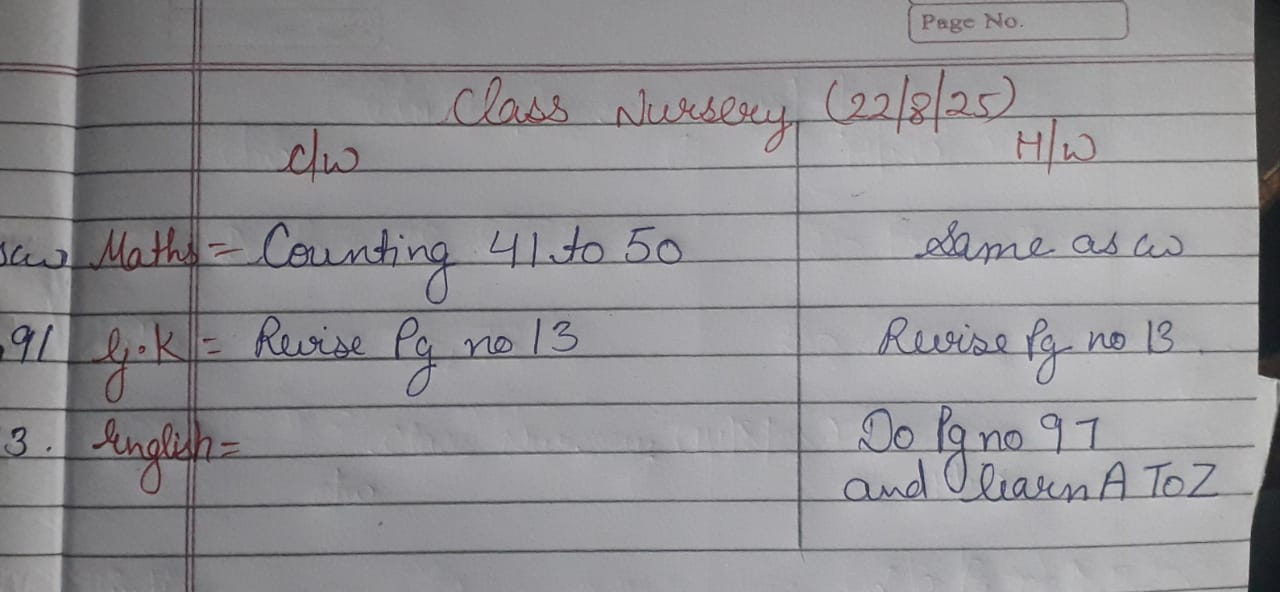 Page No.
Class Nursery (22/8/25)
C/w H/w
Maths = Counting 41 to 50 Same as cw
91 G.K = Revise Pg no 13 Revise Pg no 13
3. English = Do Pg no 97
and learn A To Z